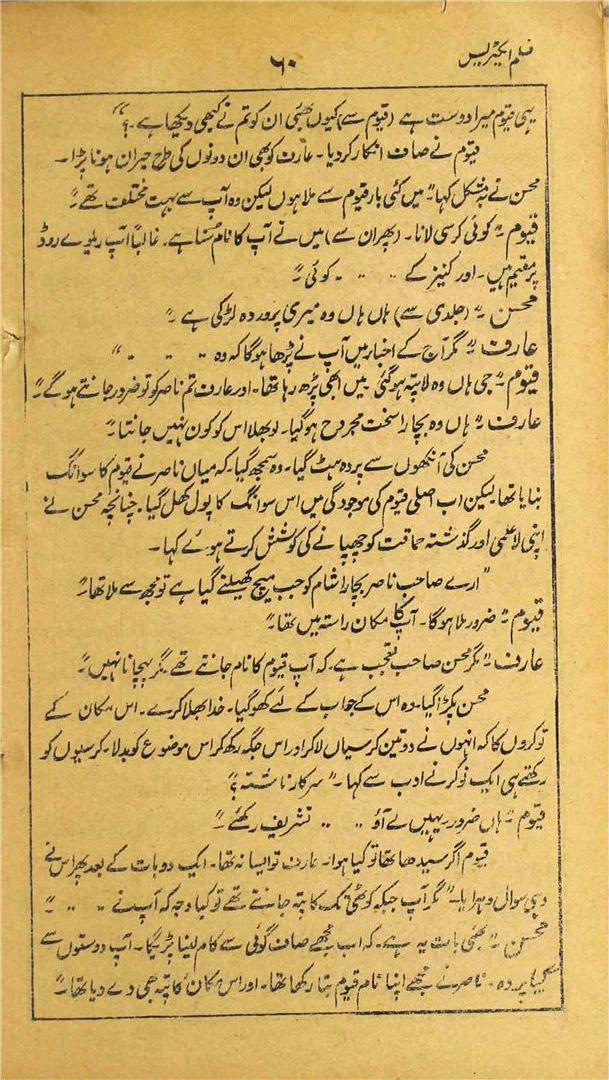 فلم ایکٹریس
۶۰
یہی قیوم میرا دوست ہے (قیوم سے) کیوں بھئی ان کو تم نے کبھی دیکھا ہے۔؟“
قیوم نے صاف انکار کر دیا۔ عارف کو بھی ان دونوں کی طرح حیران ہونا پڑا۔
محسن نے بہ مشکل کہا۔” میں کئی بار قیوم سے ملا ہوں لیکن وہ آپ سے بہت مختلف تھے۔“
قیوم۔” کوئی کرسی لانا۔ (پھر ان سے) میں نے آپ کا نام سُنا ہے۔ غالباً آپ ریلوے روڈ
پر مقیم ہیں۔ اور کنیز کے ۔۔ ۔۔ ۔ کوئی۔“
محسن۔” (جلدی سے) ہاں ہاں وہ میری پروردہ لڑکی ہے۔“
عارف۔” مگر آج کے اخبار میں آپ نے پڑھا ہوگا کہ وہ ۔۔ ۔۔ ۔۔“
قیوم۔” جی ہاں وہ لاپتہ ہوگئی میں ابھی پڑھ رہا تھا۔ اور عارف تم ناصر کو تو ضرور جانتے ہوگے۔“
عارف۔” ہاں وہ بچارا سخت مجروح ہوگیا۔ لو بھلا اس کو کون نہیں جانتا۔“
محسن کی آنکھوں سے پردہ ہٹ گیا۔ وہ سمجھ گیا۔ کہ میاں ناصر نے قیوم کا سوانگ
بنایا تھا۔ لیکن اب اصلی قیوم کی موجودگی میں اس سوانگ کا پول کھل گیا۔ چنانچہ محسن نے
اپنی لاعلمی اور گذشتہ حماقت کو چھپانے کی کوشش کرتے ہوئے کہا۔
”ارے صاحب ناصر بچارا شام کو جب میچ کھیلنے گیا ہے تو مجھ سے ملا تھا۔“
قیوم۔” ضرور ملا ہوگا۔ آپ کا مکان راستہ میں تھا۔“
عارف۔” مگر محسن صاحب تعجب ہے۔ کہ آپ قیوم کا نام جانتے تھے مگر پہچانا نہیں۔“
محسن پکڑا گیا۔ وہ اس کے جواب کے لئے کھو گیا۔ خدا بھلا کرے۔ اس مکان کے
نوکروں کا کہ انہوں نے دو تین کرسیاں لا کر اور اس جگہ رکھ کر اس موضوع کو بدلا۔ کرسیوں کو
رکھتے ہی ایک نوکر نے ادب سے کہا۔” سرکار ناشتہ؟“
قیوم۔” ہاں ضرور یہیں لے آؤ ۔۔ ۔۔ تشریف رکھئے۔“
قیوم اگر سیدھا تھا تو کیا ہوا۔ عارف تو ایسا نہ تھا۔ ایک دو بات کے بعد پھر اس نے
وہی سوال دہرایا۔” مگر آپ جبکہ کوٹھی تک کا پتہ جانتے تھے تو کیا وجہ کہ آپ نے ۔۔ ۔۔ ۔“
محسن۔” بھئی بات یہ ہے۔ کہ اب مجھے صاف گوئی سے کام لینا پڑیگا۔ آپ دوستوں سے
کیا پردہ۔ ناصر نے مجھے اپنا نام قیوم بتا رکھا تھا۔ اور اس مکان کا پتہ بھی دے دیا تھا۔“